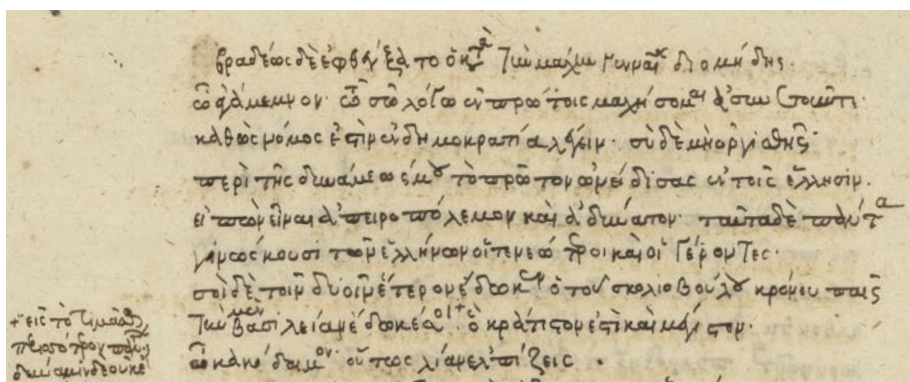 βραδέως δὲ ἐφθέγξατο ὁ κατὰ τὴν μάχην γενναῖος διομήδης·
ὦ ἀγάμεμνον· τῷ λόγῳ ἐν πρώτοις μαχήσομαι ἀσυνετοῦντι·
καθὼς νόμος ἐστὶν ἐν δημοκρατία λέγειν· σὺ δὲ μὴ ὀργισθῆς·
περὶ τῆς δυνάμεώς μου τὸ πρῶτον ὠνείδισας ἐν τοῖς ἕλλησιν.
εἰπὼν εἶναι ἀπειροπόλεμον καὶ ἀδύνατον· ταῦτα δὲ πάντα
γινώσκουσι τῶν ἑλλήνων οἵτε νεώτεροι καὶ οἱ γέροντες·
σοὶ δὲ τοῖν δυοῖν ἕτερον ἔδωκεν ὁ τοῦ σκολιοβούλου κρόνου παῖς
τὴν μὲν βασιλείαν ἔδωκέ σοι + ὃ κράτιστον ἐστὶ καὶ μέγιστον·
ὦ κακόδαιμον· οὕτως λίαν ἐλπίζεις
+ εἰς τὸ τιμᾶσθαι
πάντων
δύναμιν δὲ οὐκ